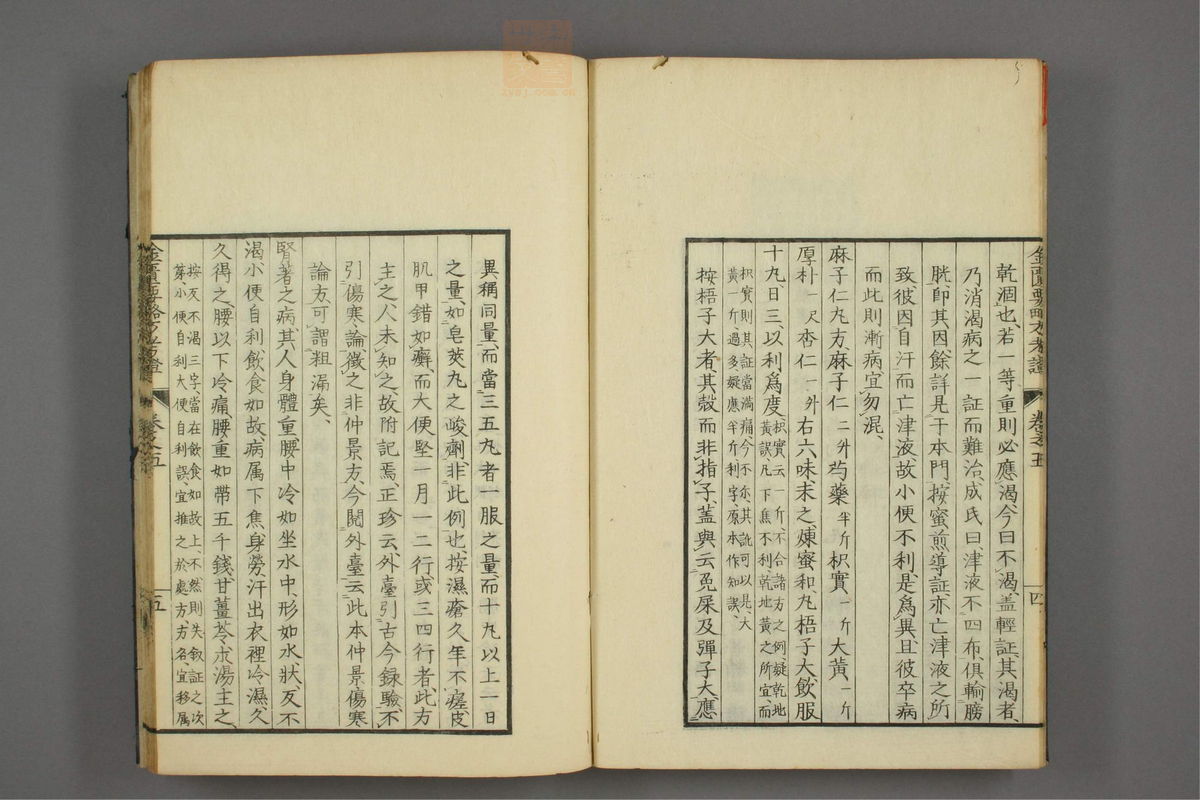 乾涸也、若一等重則必應渴、今曰不渴、蓋輕証、其渴者、
乃消渴病之一証而難治、成氏曰津液不四布、俱輸膀
胱、卽其因、餘詳見于本門、按蜜煎導証、亦亡津液之所
致、彼因自汗而亡津液、故小便不利、是爲異、且彼卒病
而此則漸病、宜勿混、
麻子仁丸方、麻子仁二升芍藥半斤枳實一斤大黃一斤
厚朴一尺杏仁一升右六味、末之、煉蜜和、丸梧子大、飲服
十丸、日三、以利爲度、枳實云一斤不合諸方之例、疑乾地
黃誤、凡下焦不利、乾地黃之所宜、而
枳實則其証當滿痛、今不尓、其訛可以是、大
黃一斤、過多、疑應半斤、利字、原本作知誤、
按梧子大者、其殼而非指子、蓋與云兔屎及彈子大、應
異稱同量、而當三五丸者一服之量、而十丸以上一日
之量、如皂莢丸之峻劑、非此例也、按濕瘡久年不瘥、皮
肌甲錯如癬、而大便堅一月一二行或三四行者、此方
主之、人未知之、故附記焉、正珍云、外臺引古今錄驗、不
引傷寒論、徵之非仲景方、今閱外臺、云此本仲景傷寒
論方、可謂粗漏矣、
腎著之病、其人身體重、腰中冷如坐水中、形如水狀、反不
渴、小便自利、飲食如故、病屬下焦、身勞汗出、衣裡冷濕、久
久得之、腰以下冷痛、腰重如帶五千錢、甘薑苓朮湯主之、
按反不渴三字、當在飲食如故上、不然則失敘証之次
第、小便自利、大便自利誤、宜推之於處方、方名、宜移屬
金匱要略方考證
卷之五
四
金匱要略方考證
卷之五
五
zysj.com.cn